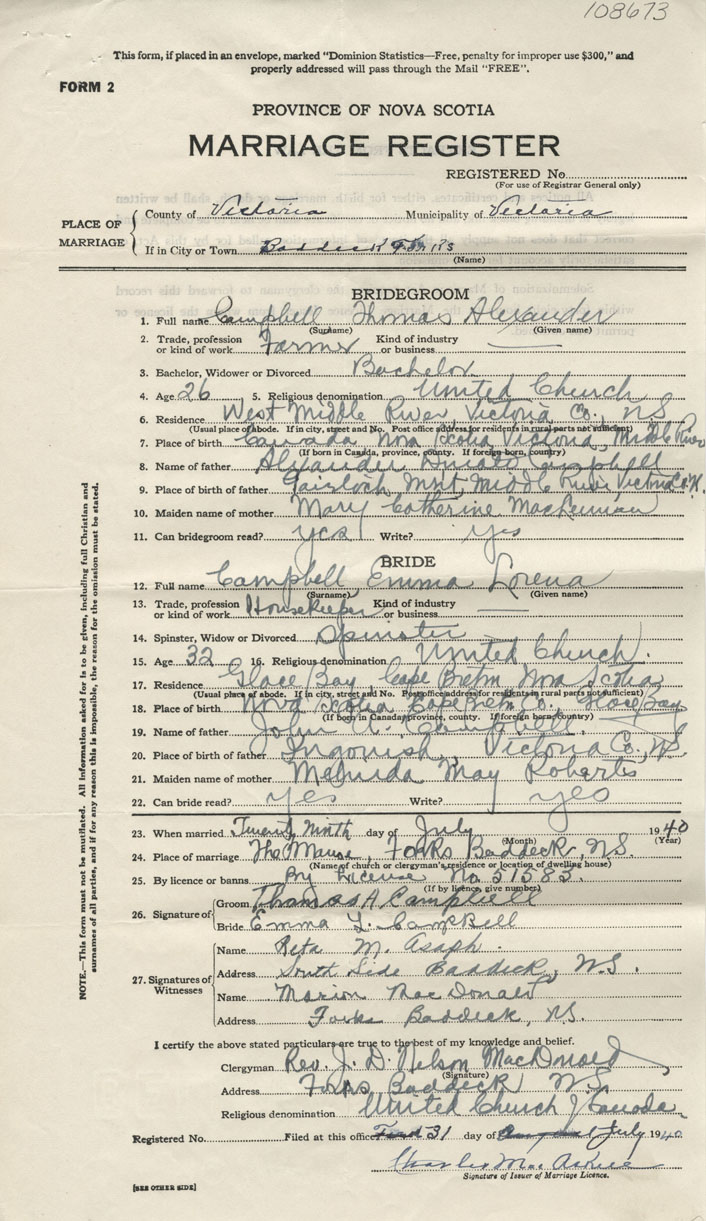 108673
This form, if placed in an envelope, marked "Dominion Statistics—Free, penalty for improper use $300," and
properly addressed will pass through the Mail "FREE".
FORM 2
PROVINCE OF NOVA SCOTIA
MARRIAGE REGISTER
REGISTERED No.
(For use of Registrar General only)
PLACE OF MARRIAGE
County of Victoria Municipality of Victoria
If in City or Town Baddeck Forks
(Name)
BRIDEGROOM
1. Full name Campbell Thomas Alexander
(Surname) (Given name)
2. Trade, profession or kind of work Farmer Kind of industry or business
3. Bachelor, Widower or Divorced Bachelor
4. Age 26 5. Religious denomination United Church
6. Residence West Middle River, Victoria Co. N.S.
(Usual place of abode. If in city, street and No. Post office address for residents in rural parts not sufficient)
7. Place of birth Canada Nova Scotia, Victoria, Middle River
(If born in Canada, province, county. If foreign born, country)
8. Name of father Alexander Campbell
9. Place of birth of father Gairloch Mnt, Middle River, Victoria Co. N.
10. Maiden name of mother Mary Catherine MacLennan
11. Can bridegroom read? yes Write? yes
BRIDE
12. Full name Campbell Emma Lorena
(Surname) (Given name)
13. Trade, profession or kind of work Housekeeper Kind of industry or business
14. Spinster, Widow or Divorced Spinster
15. Age 32 16. Religious denomination United Church.
17. Residence Glace Bay, Cape Breton Nova Scotia
(Usual place of abode. If in city, street and No. Post office address for residents in rural parts not sufficient)
18. Place of birth Nova Scotia Cape Breton Co. Glace Bay
(If born in Canada, province, county. If foreign born, country)
19. Name of father John A. Campbell
20. Place of birth of father Ingonish, Victoria Co, N.S.
21. Maiden name of mother Melinda May Roberts
22. Can bride read? yes Write? yes
23. When married Twenty Ninth day of July 1940
(Month) (Year)
24. Place of marriage The Manse, Forks Baddeck, N.S.
(Name of church or clergyman's residence or location of dwelling house)
25. By licence or banns By License No. 51583
(If by licence, give number)
26. Signature of
Groom Thomas A Campbell
Bride Emma L. Campbell
27. Signatures of Witnesses
Name Reta M. Asaph.
Address South Side Baddeck, N.S.
Name Marion MacDonald
Address Forks Baddeck, N.S.
I certify the above stated particulars are true to the best of my knowledge and belief.
Clergyman Rev. J. D. Nelson MacDonald
(Signature)
Address Forks Baddeck N.S.
Religious denomination United Church of Canada
Registered No. Filed at this office 31 day of July 1940
Charles MacAskill
Signature of Issuer of Marriage Licence.
[SEE OTHER SIDE]
NOTE.—This form must not be mutilated. All information asked for is to be given, including full Christian and
surnames of all parties, and if for any reason this is impossible, the reason for the omission must be stated.